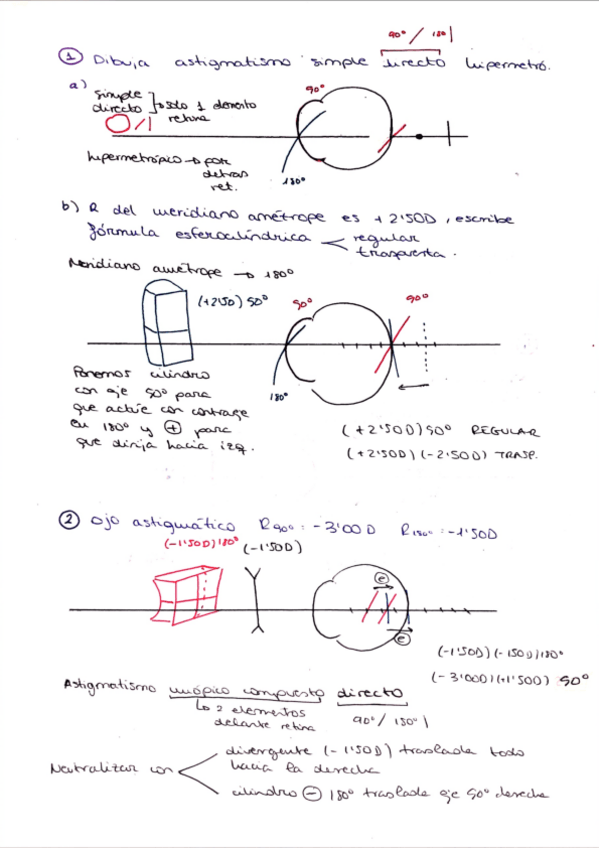 90° / 180 |
① Dibuja astigmatismo simple directo hipermetró.
a)
simple
directo → solo 1 elemento
retina
90°
hipermetrópico → por
detrás
ret.
180°
b) R del meridiano amétrope es +2'50D, escribe
fórmula esferocilíndrica
regular
traspuesta.
Meridiano amétrope → 180°
(+2'50) 90°
90°
90°
180°
Ponemos cilindro
con eje 90° para
que actúe con contraeje
en 180° y ⊕ para
que dirija hacia izq.
(+2'50D) 90° REGULAR
(+2'50D) (-2'50D) TRASP.
② Ojo astigmático R90° = -3'00D R180° = -1'50D
(-1'50D) 180° (-1'50D)
e
e
(-1'50D) (-1'50D) 180°
(-3'00D) (+1'50D) 90°
Astigmatismo miópico compuesto directo
↳ 2 elementos
delante retina
90° / 180° |
Neutralizar con
divergente (-1'50D) traslada todo
hacia la derecha
cilindro ⊖ 180° traslada eje 90° derecha